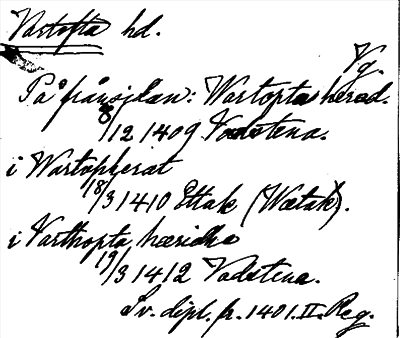 Vartofta hd.
Vg.
På frånsidan: Wartoptas hærad.
8/12 1409 Vadstena.
i Wartopherat
18/3 1410 Ettak (Wætak).
i Varthopta hæridhe
19/3 1412 Vadstena.
Sv. dipl. fr. 1401. II. Reg.